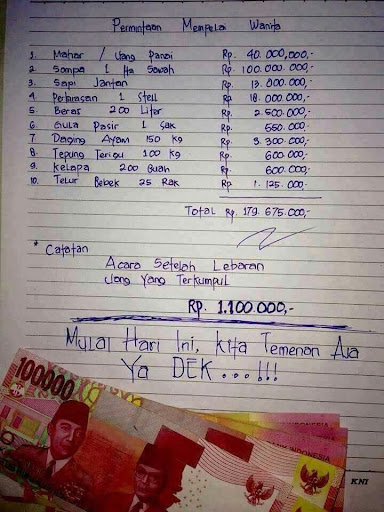 Permintaan Mempelai Wanita
1. Mahar / Uang Panai Rp. 40.000,000,-
2 Sompa 1 Ha Sawah Rp. 100.000.000,-
3. Sapi Jantan Rp. 13.000.000,-
4 Perhiasan 1 Stell Rp. 18.000.000,-
5 Beras 200 Liter Rp. 2.500.000,-
6 Gula Pasir 1 Sak Rp. 550.000,-
7 Daging Ayam 150 Kg Rp. 3.300.000,-
8. Tepung Terigu 100 Kg Rp. 600.000,-
9 Kelapa 200 Buah Rp. 600.000,-
10. Telur Bebek 25 Rak Rp. 1.125.000,-
Total Rp. 179.675.000,-
* Catatan
Acara Setelah Lebaran
Uang Yang Terkumpul
Rp. 1.100.000,-
Mulai Hari Ini, Kita Temenan Aja
Ya DEK...!!!
100000
INDONESIA
BANK INDONESIA
KNI